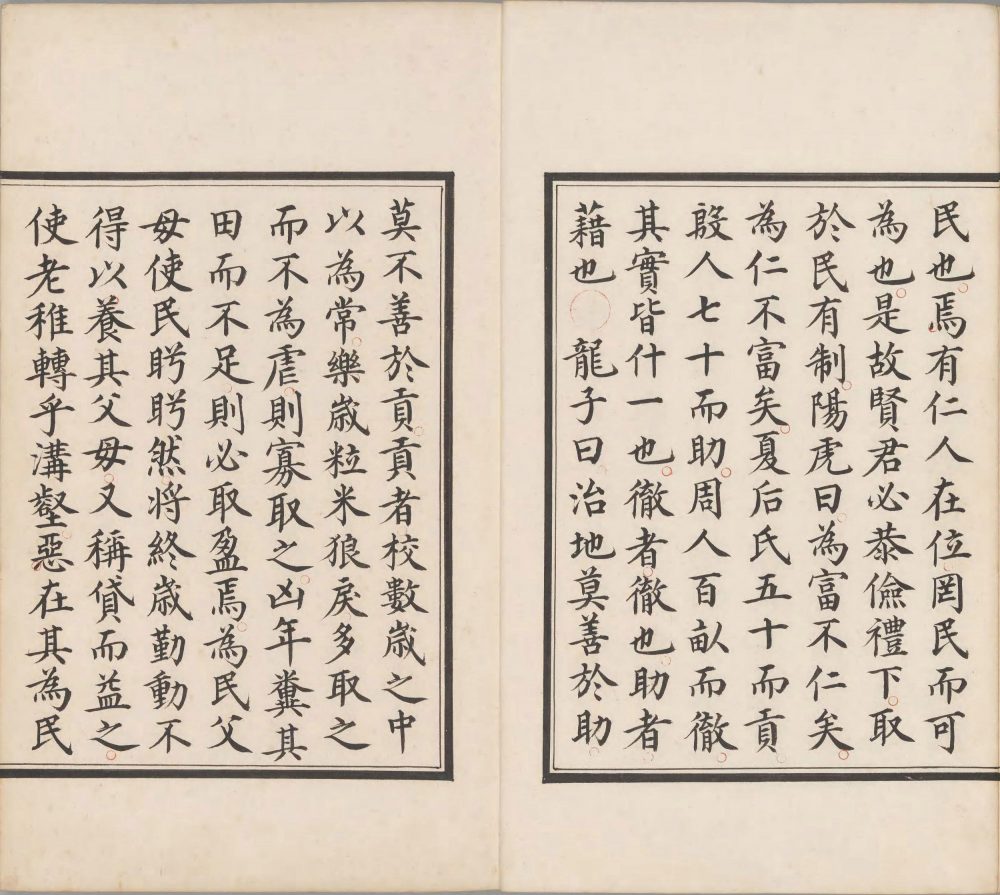 民也焉有仁人在位罔民而可
為也是故賢君必恭儉禮下取
於民有制陽虎曰為富不仁矣
為仁不富矣夏后氏五十而貢
殷人七十而助周人百畝而徹
其實皆什一也徹者徹也助者
藉也龍子曰治地莫善於助
莫不善於貢貢者校數歲之中
以為常樂歲粒米狼戾多取之
而不為虐則寡取之凶年糞其
田而不足則必取盈焉為民父
母使民盻盻然將終歲勤動不
得以養其父母又稱貸而益之
使老稚轉乎溝壑惡在其為民